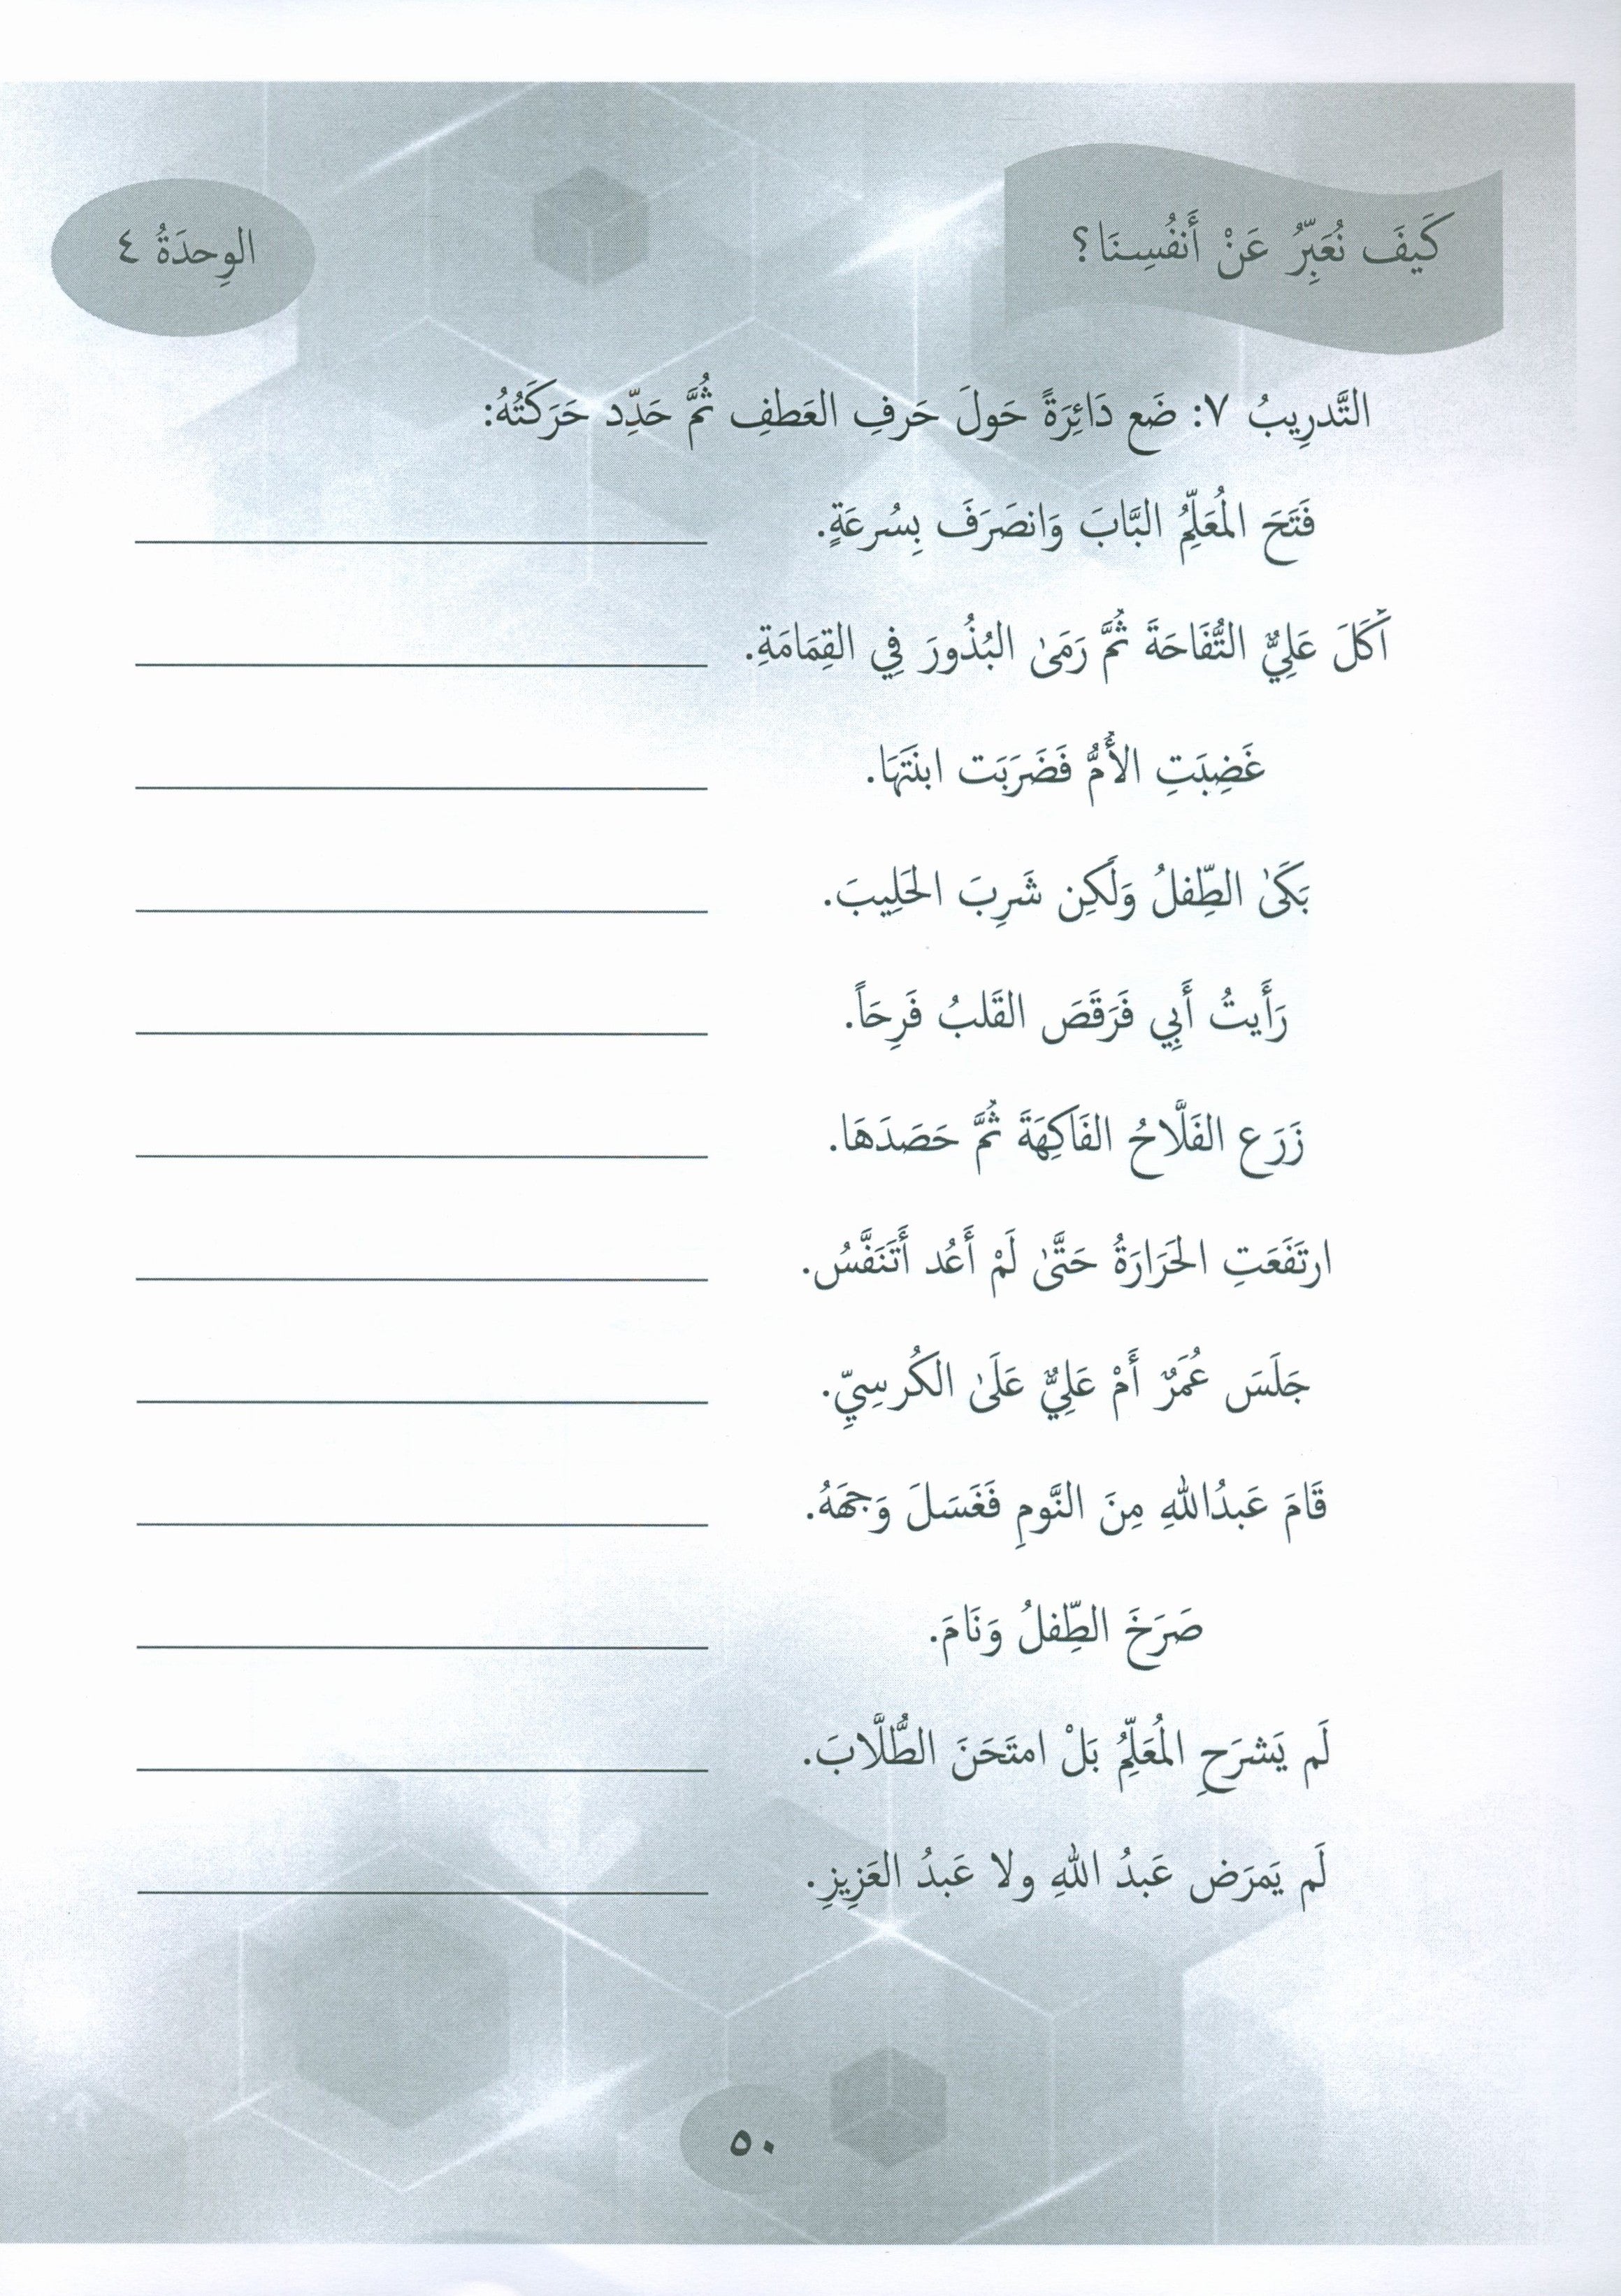 كَيفَ نُعَبِّرُ عَنْ أَنفُسِنَا؟
الوِحدَةُ ٤
التَّدرِيبُ ٧: ضَع دَائِرَةً حَولَ حَرفِ العَطفِ ثُمَّ حَدِّد حَرَكَتُهُ:
فَتَحَ المُعَلِّمُ البَّابَ وَانصَرَفَ بِسُرعَةٍ.
أَكَلَ عَلِيٌّ التُّفَاحَةَ ثُمَّ رَمَىٰ البُذُورَ فِي القِمَامَةِ.
غَضِبَتِ الأُمُّ فَضَرَبَت ابنَتَهَا.
بَكَىٰ الطِّفلُ وَلَكِن شَرِبَ الحَلِيبَ.
رَأَيتُ أَبِي فَرَقَصَ القَلبُ فَرِحَاً.
زَرَع الفَلَّاحُ الفَاكِهَةَ ثُمَّ حَصَدَهَا.
ارتَفَعَتِ الحَرَارَةُ حَتَّىٰ لَمْ أَعُد أَتَنَفَّسُ.
جَلَسَ عُمَرٌ أَمْ عَلِيٌّ عَلَىٰ الكُرسِيِّ.
قَامَ عَبدُاللهِ مِنَ النَّومِ فَغَسَلَ وَجهَهُ.
صَرَخَ الطِّفلُ وَنَامَ.
لَم يَشرَحِ المُعَلِّمُ بَلْ امتَحَنَ الطُّلَّابَ.
لَم يَمرَض عَبدُ اللهِ ولا عَبدُ العَزِيزِ.
٥٠